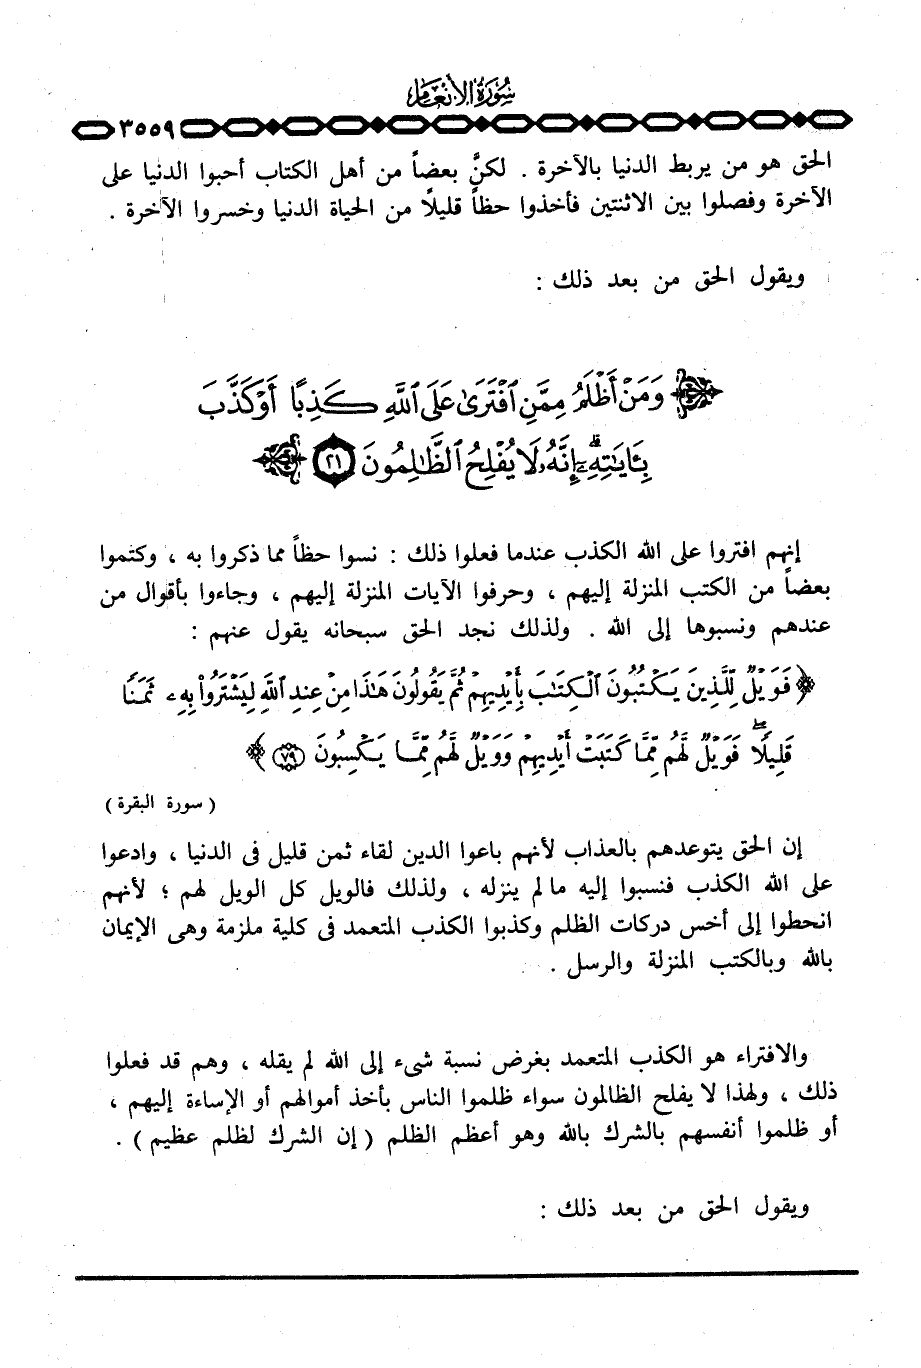 سورة الأنعام
٣٥٥٩
الحق هو من يربط الدنيا بالآخرة . لكنَّ بعضاً من أهل الكتاب أحبوا الدنيا على
الآخرة وفصلوا بين الاثنتين فأخذوا حظاً قليلاً من الحياة الدنيا وخسروا الآخرة .
ويقول الحق من بعد ذلك :
وَمَنْ أَظْلَمُ مِمَّنِ ٱفْتَرَىٰ عَلَى ٱللَّهِ كَذِبًا أَوْ كَذَّبَ
بِـَٔايَـٰتِهِۦٓ ۗ إِنَّهُۥ لَا يُفْلِحُ ٱلظَّـٰلِمُونَ ٢١
إنهم افتروا على الله الكذب عندما فعلوا ذلك : نسوا حظاً مما ذكروا به ، وكتموا
بعضاً من الكتب المنزلة إليهم ، وحرفوا الآيات المنزلة إليهم ، وجاءوا بأقوال من
عندهم ونسبوها إلى الله . ولذلك نجد الحق سبحانه يقول عنهم :
﴿ فَوَيْلٌ لِّلَّذِينَ يَكْتُبُونَ ٱلْكِتَـٰبَ بِأَيْدِيهِمْ ثُمَّ يَقُولُونَ هَـٰذَا مِنْ عِندِ ٱللَّهِ لِيَشْتَرُوا۟ بِهِۦ ثَمَنًا
قَلِيلًا ۖ فَوَيْلٌ لَّهُم مِّمَّا كَتَبَتْ أَيْدِيهِمْ وَوَيْلٌ لَّهُم مِّمَّا يَكْسِبُونَ ٧٩ ﴾
( سورة البقرة )
إن الحق يتوعدهم بالعذاب لأنهم باعوا الدين لقاء ثمن قليل فى الدنيا ، وادعوا
على الله الكذب فنسبوا إليه ما لم ينزله ، ولذلك فالويل كل الويل لهم ؛ لأنهم
انحطوا إلى أخس دركات الظلم وكذبوا الكذب المتعمد فى كلية ملزمة وهى الإيمان
بالله وبالكتب المنزلة والرسل .
والافتراء هو الكذب المتعمد بغرض نسبة شىء إلى الله لم يقله ، وهم قد فعلوا
ذلك ، ولهذا لا يفلح الظالمون سواء ظلموا الناس بأخذ أموالهم أو الإساءة إليهم ،
أو ظلموا أنفسهم بالشرك بالله وهو أعظم الظلم ( إن الشرك لظلم عظيم ) .
ويقول الحق من بعد ذلك :